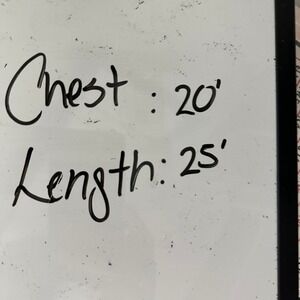 Chest : 20'
Length : 25'